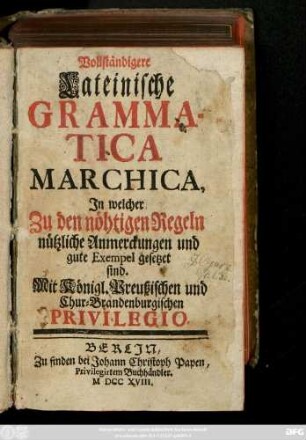 Vollständigere
Lateinische
GRAMMA-
TICA
MARCHICA,
In welcher
Zu den nöhtigen Regeln
nützliche Anmerckungen und
gute Exempel gesetzet
sind.
Mit Königl. Preußischen und
Chur-Brandenburgischen
PRIVILEGIO.
BERLIN,
Zu finden bei Johann Christoph Papen,
Privilegirtem Buchhändler.
M DCC XVIII.